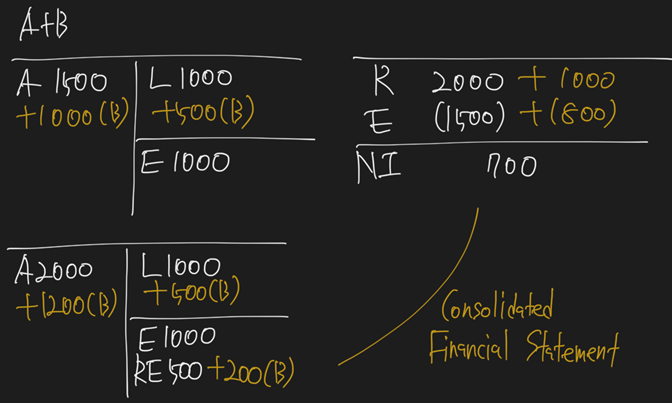 A+B
A 1500
+1000(B)
L 1000
+500(B)
E 1000
R 2000 + 1000
E (1500) + (800)
NI 700
A 2000
+1200(B)
L 1000
+500(B)
E 1000
RE 500 +200(B)
Consolidated
Financial Statement